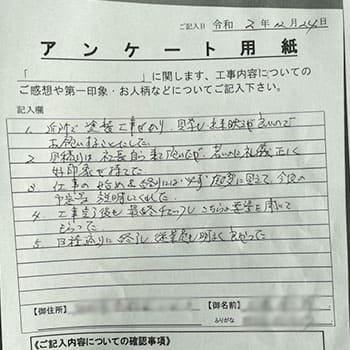 ご記入日 令和 2年12月24日
アンケート用紙
「 」に関します、工事内容についての
ご感想や第一印象・お人柄などについてご記入下さい。
記入欄
1. 近所で塗装工事があり、見学し出来映えが良いので
お願いすることにした。
2. 見積りは社長自ら来て頂いたが、若いのに礼儀正しく
好印象を得た。
3. 仕事の始めと終りには必ず顔を見て、今日の
予定等説明してくれた。
4. 工事完了後も最終チェックし こちらの要望を聞いて
もらった
5. 日程通りに終了し 従業員も明るく良かった
【御住所】
【御名前】
ふりがな
《ご記入内容についての確認事項》